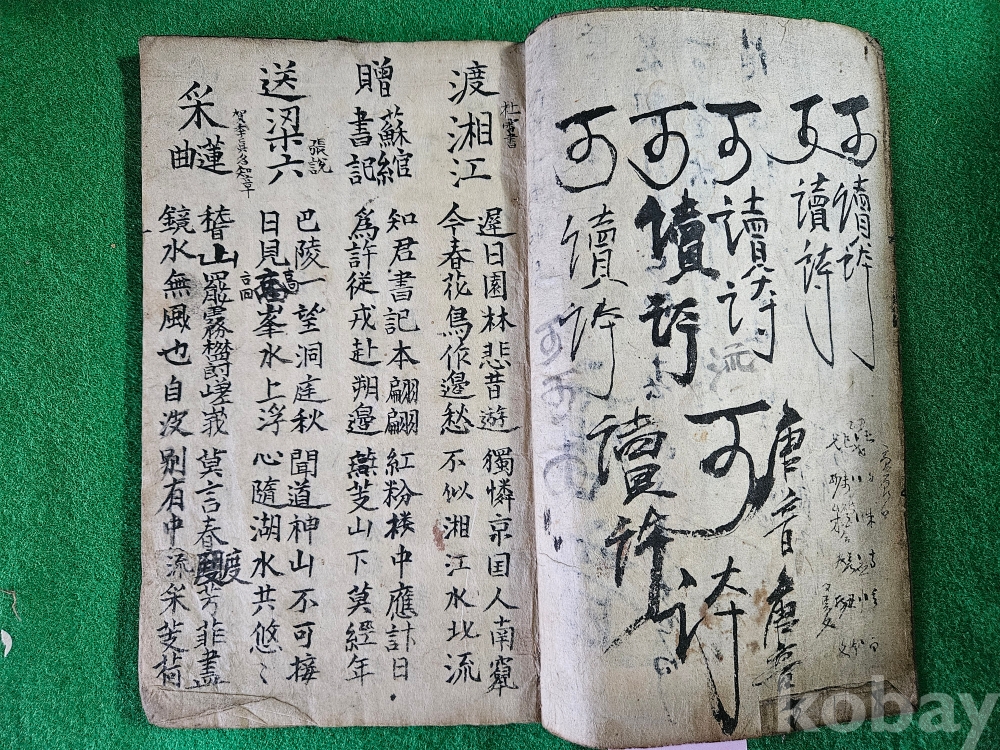 可讀詩
可讀詩
可讀詩
可讀詩
可讀詩
唐音 唐音
可詩
讀詩
渡湘江
遲日園林悲昔遊 獨憐京国人南竄
今春花鳥作邊愁 不似湘江水北流
贈蘇綰書記
知君書記本翩翩 紅粉樓中應計日
爲許從戎赴朔邊 燕芰山下莫經年
送梁六 張説
巴陵一望洞庭秋 聞道神山不可接
日見高峯水上浮 心隨湖水共悠〻
采蓮曲 賀季真名知章
稽山罷霧欝嵯峩 莫言春度芳菲盡
鏡水無風也自波 别有中流采芰荷
kobay